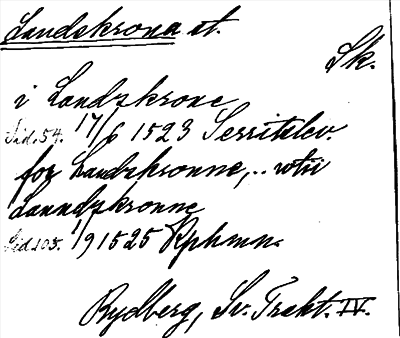 Landskrona st.
Sk.
i Landzkrone
Sid. 54. 17/6 1523 Serritslev.
for Landzkronne, .. wtii
Lanndzkronne
Sid 105. 1/9 1525 Kphmn.
Rydberg, Sv. Trakt. IV.